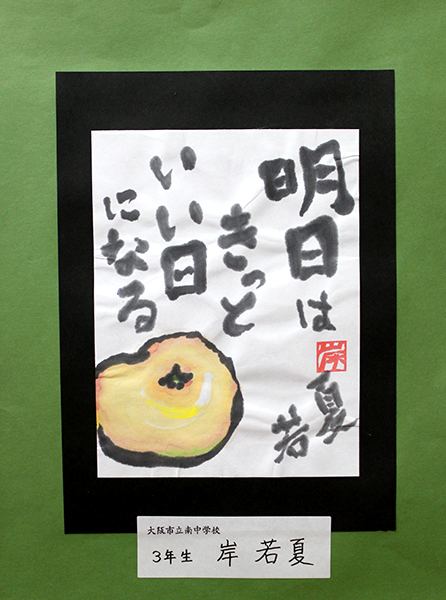 明日は
きっと
いい日
になる
岸
若夏
大阪市立南中学校
3年生 岸 若夏